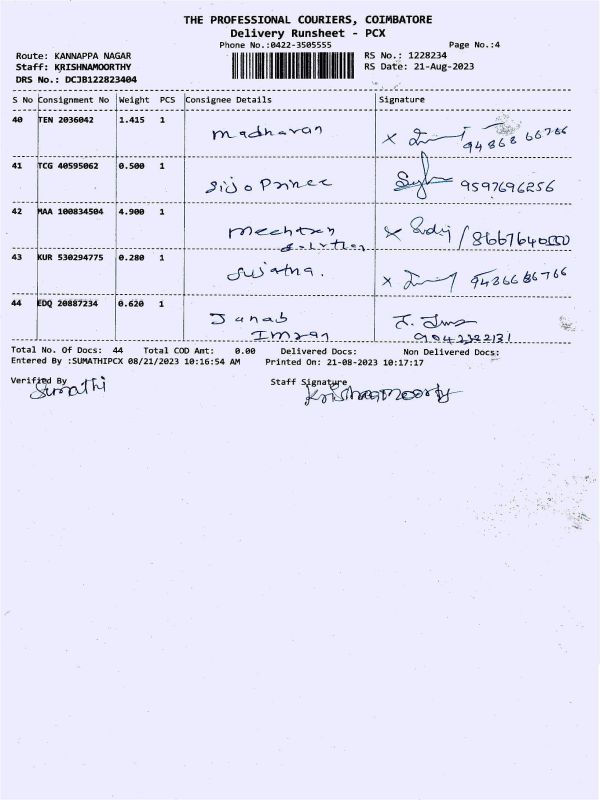 THE PROFESSIONAL COURIERS, COIMBATORE
Delivery Runsheet - PCX
Phone No.:0422-3505555 Page No.:4
Route: KANNAPPA NAGAR RS No.: 1228234
Staff: KRISHNAMOORTHY RS Date: 21-Aug-2023
DRS No.: DCJB122823404
S No Consignment No Weight PCS Consignee Details Signature
40 TEN 2036042 1.415 1
Madhavan
41 TCG 40595062 0.500 1
Sijo Prince 9597696256
42 MAA 100834504 4.900 1
43 KUR 530294775 0.280 1
Sujatha.
44 EDQ 20887234 0.620 1
Janab
Imran
Total No. Of Docs: 44 Total COD Amt: 0.00 Delivered Docs: Non Delivered Docs:
Entered By :SUMATHIPCX 08/21/2023 10:16:54 AM Printed On: 21-08-2023 10:17:17
Verified By Staff Signature
Sumathi Krishnamoorthy